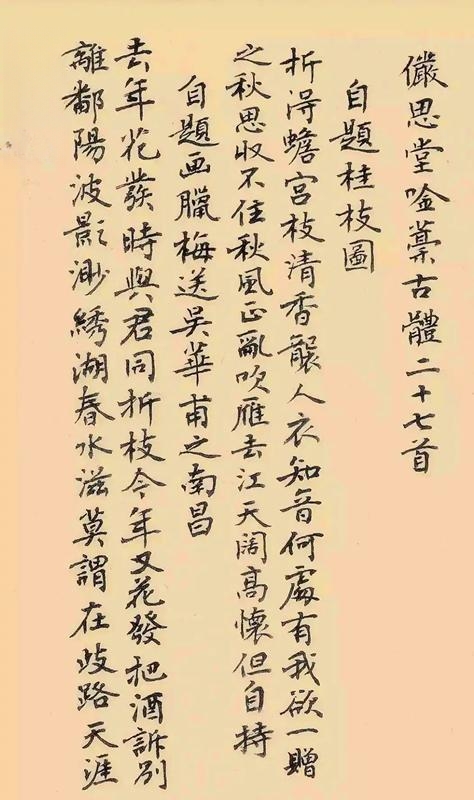 儼思堂唫藁古體二十七首
自題桂枝圖
折得蟾宮枝清香襲人衣知音何處有我欲一贈
之秋思收不住秋風正亂吹雁去江天闊高懷但自持
自題画臘梅送吳華甫之南昌
去年花發時與君同折枝今年又花發把酒訴別
離鄱陽波影渺綉湖春水滋莫謂在歧路天涯